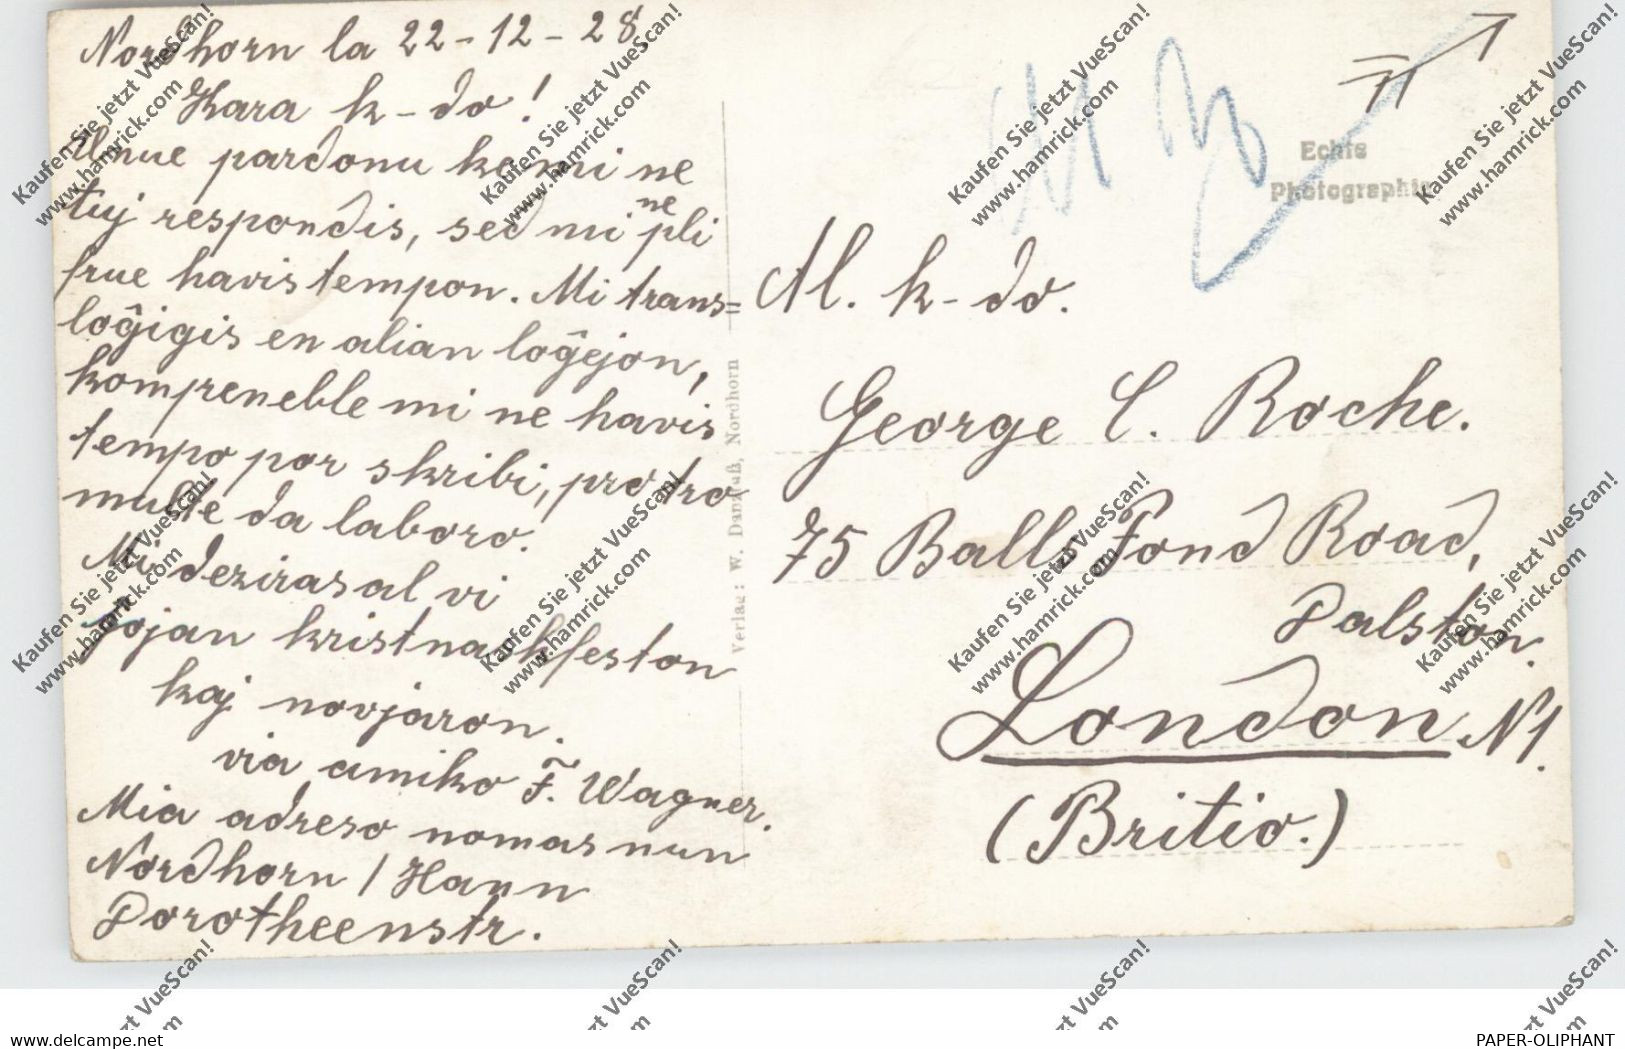 Nordhorn la 22-12-28.
Kara k-do!
Unue pardonu ke mi ne
tuj respondis, sed mi ne pli
frue havis tempon. Mi trans=
loĝigis en alian loĝejon,
kompreneble mi ne havis
tempo por skribi, pro tro
multe da laboro.
Mi deziras al vi
ĝojan kristnaskfeston
kaj novjaron.
via amiko F. Wagner.
Mia adreso nomas nun
Nordhorn / Hann
Dorotheenstr.
Verlag: W. Danzfuß, Nordhorn
Echte
Photographie
Al. k-do.
George C. Roche.
75 Balls Pond Road,
Dalston.
London N1.
(Britio.)
Kaufen Sie jetzt VueScan!
www.hamrick.com
www.oldthing.de
PAPER-OLIPHANT